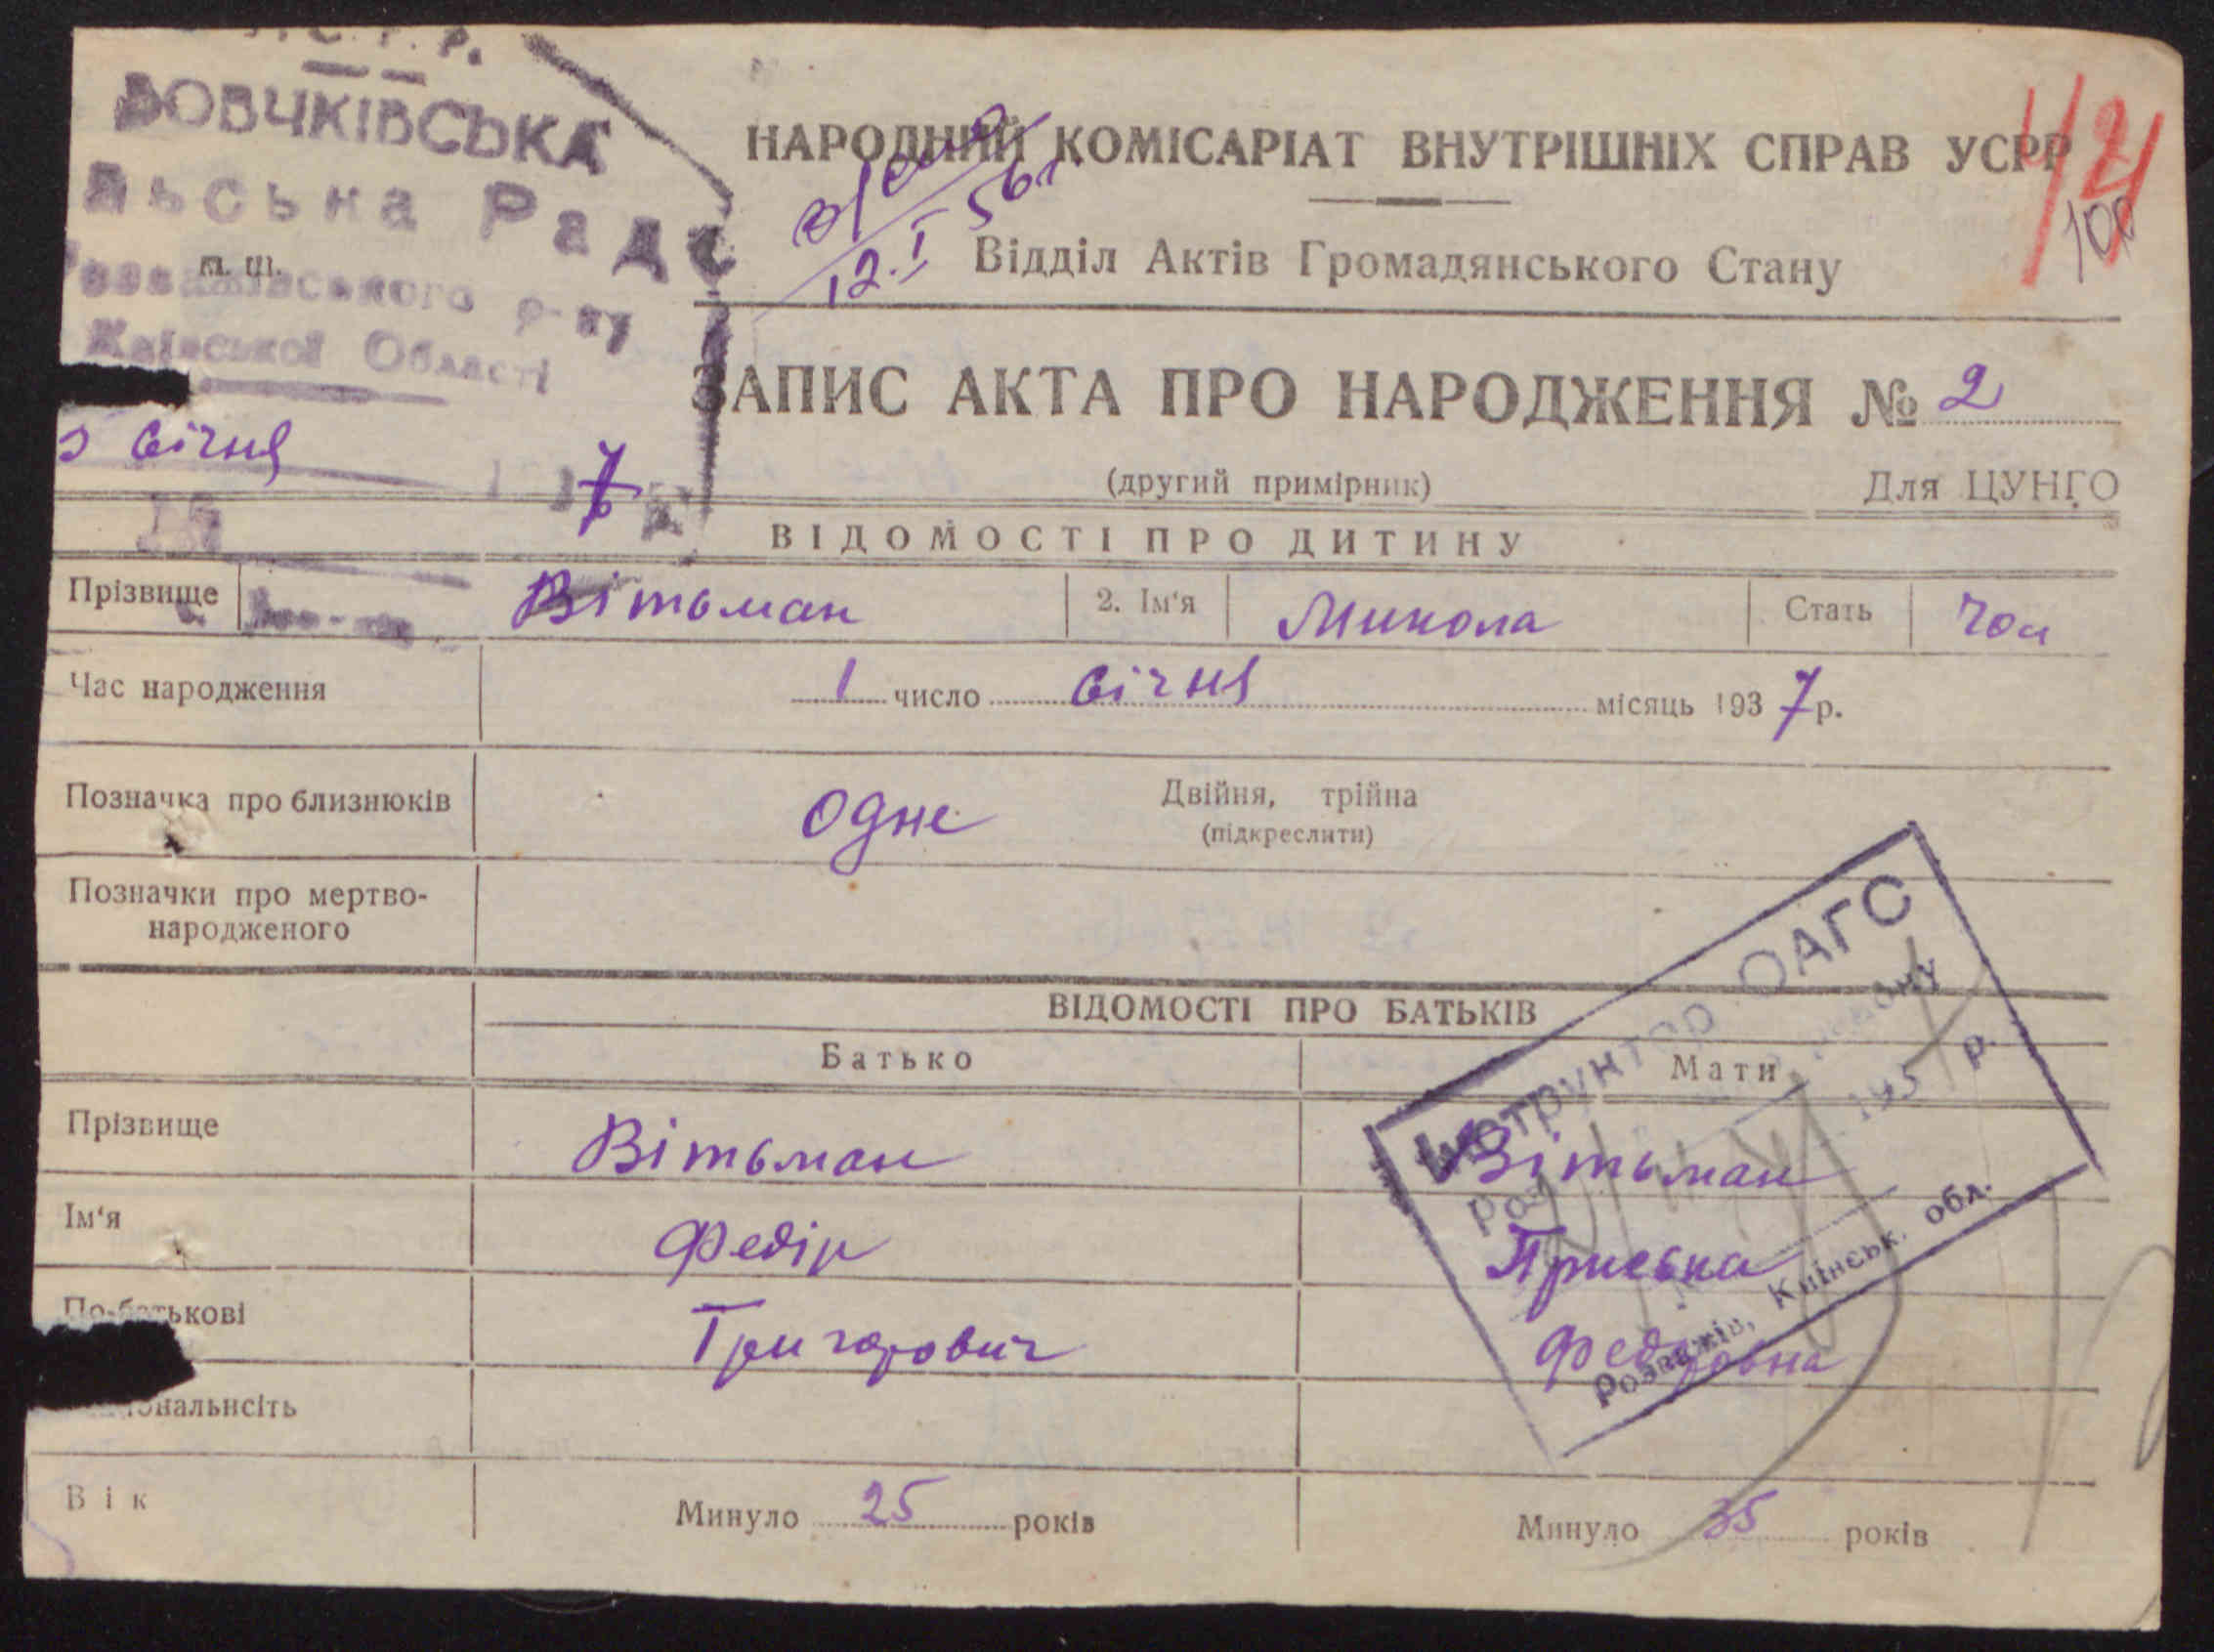 ВОВЧКІВСЬКА
льська Рада
м. ш.
р-ну
Київської Області
5 січня 7
НАРОДНИЙ КОМІСАРІАТ ВНУТРІШНІХ СПРАВ УСРР
100
12.I 56 г.
Відділ Актів Громадянського Стану
ЗАПИС АКТА ПРО НАРОДЖЕННЯ № 2
(другий примірник) Для ЦУНГО
ВІДОМОСТІ ПРО ДИТИНУ
Прізвище Вітьман 2. Ім'я Микола Стать чол
Час народження 1 число січня місяць 1937 р.
Позначка про близнюків одне Двійня, трійна
(підкреслити)
Позначки про мертво-
народженого
ВІДОМОСТІ ПРО БАТЬКІВ
Батько Мати
Прізвище Вітьман Вітьман
Ім'я Федір Приська
По-батькові Григорович Федоровна
ональнсіть
Вік Минуло 25 років Минуло 35 років
Інструктор ОАГС
195 р.
Розважів, Київськ. обл.